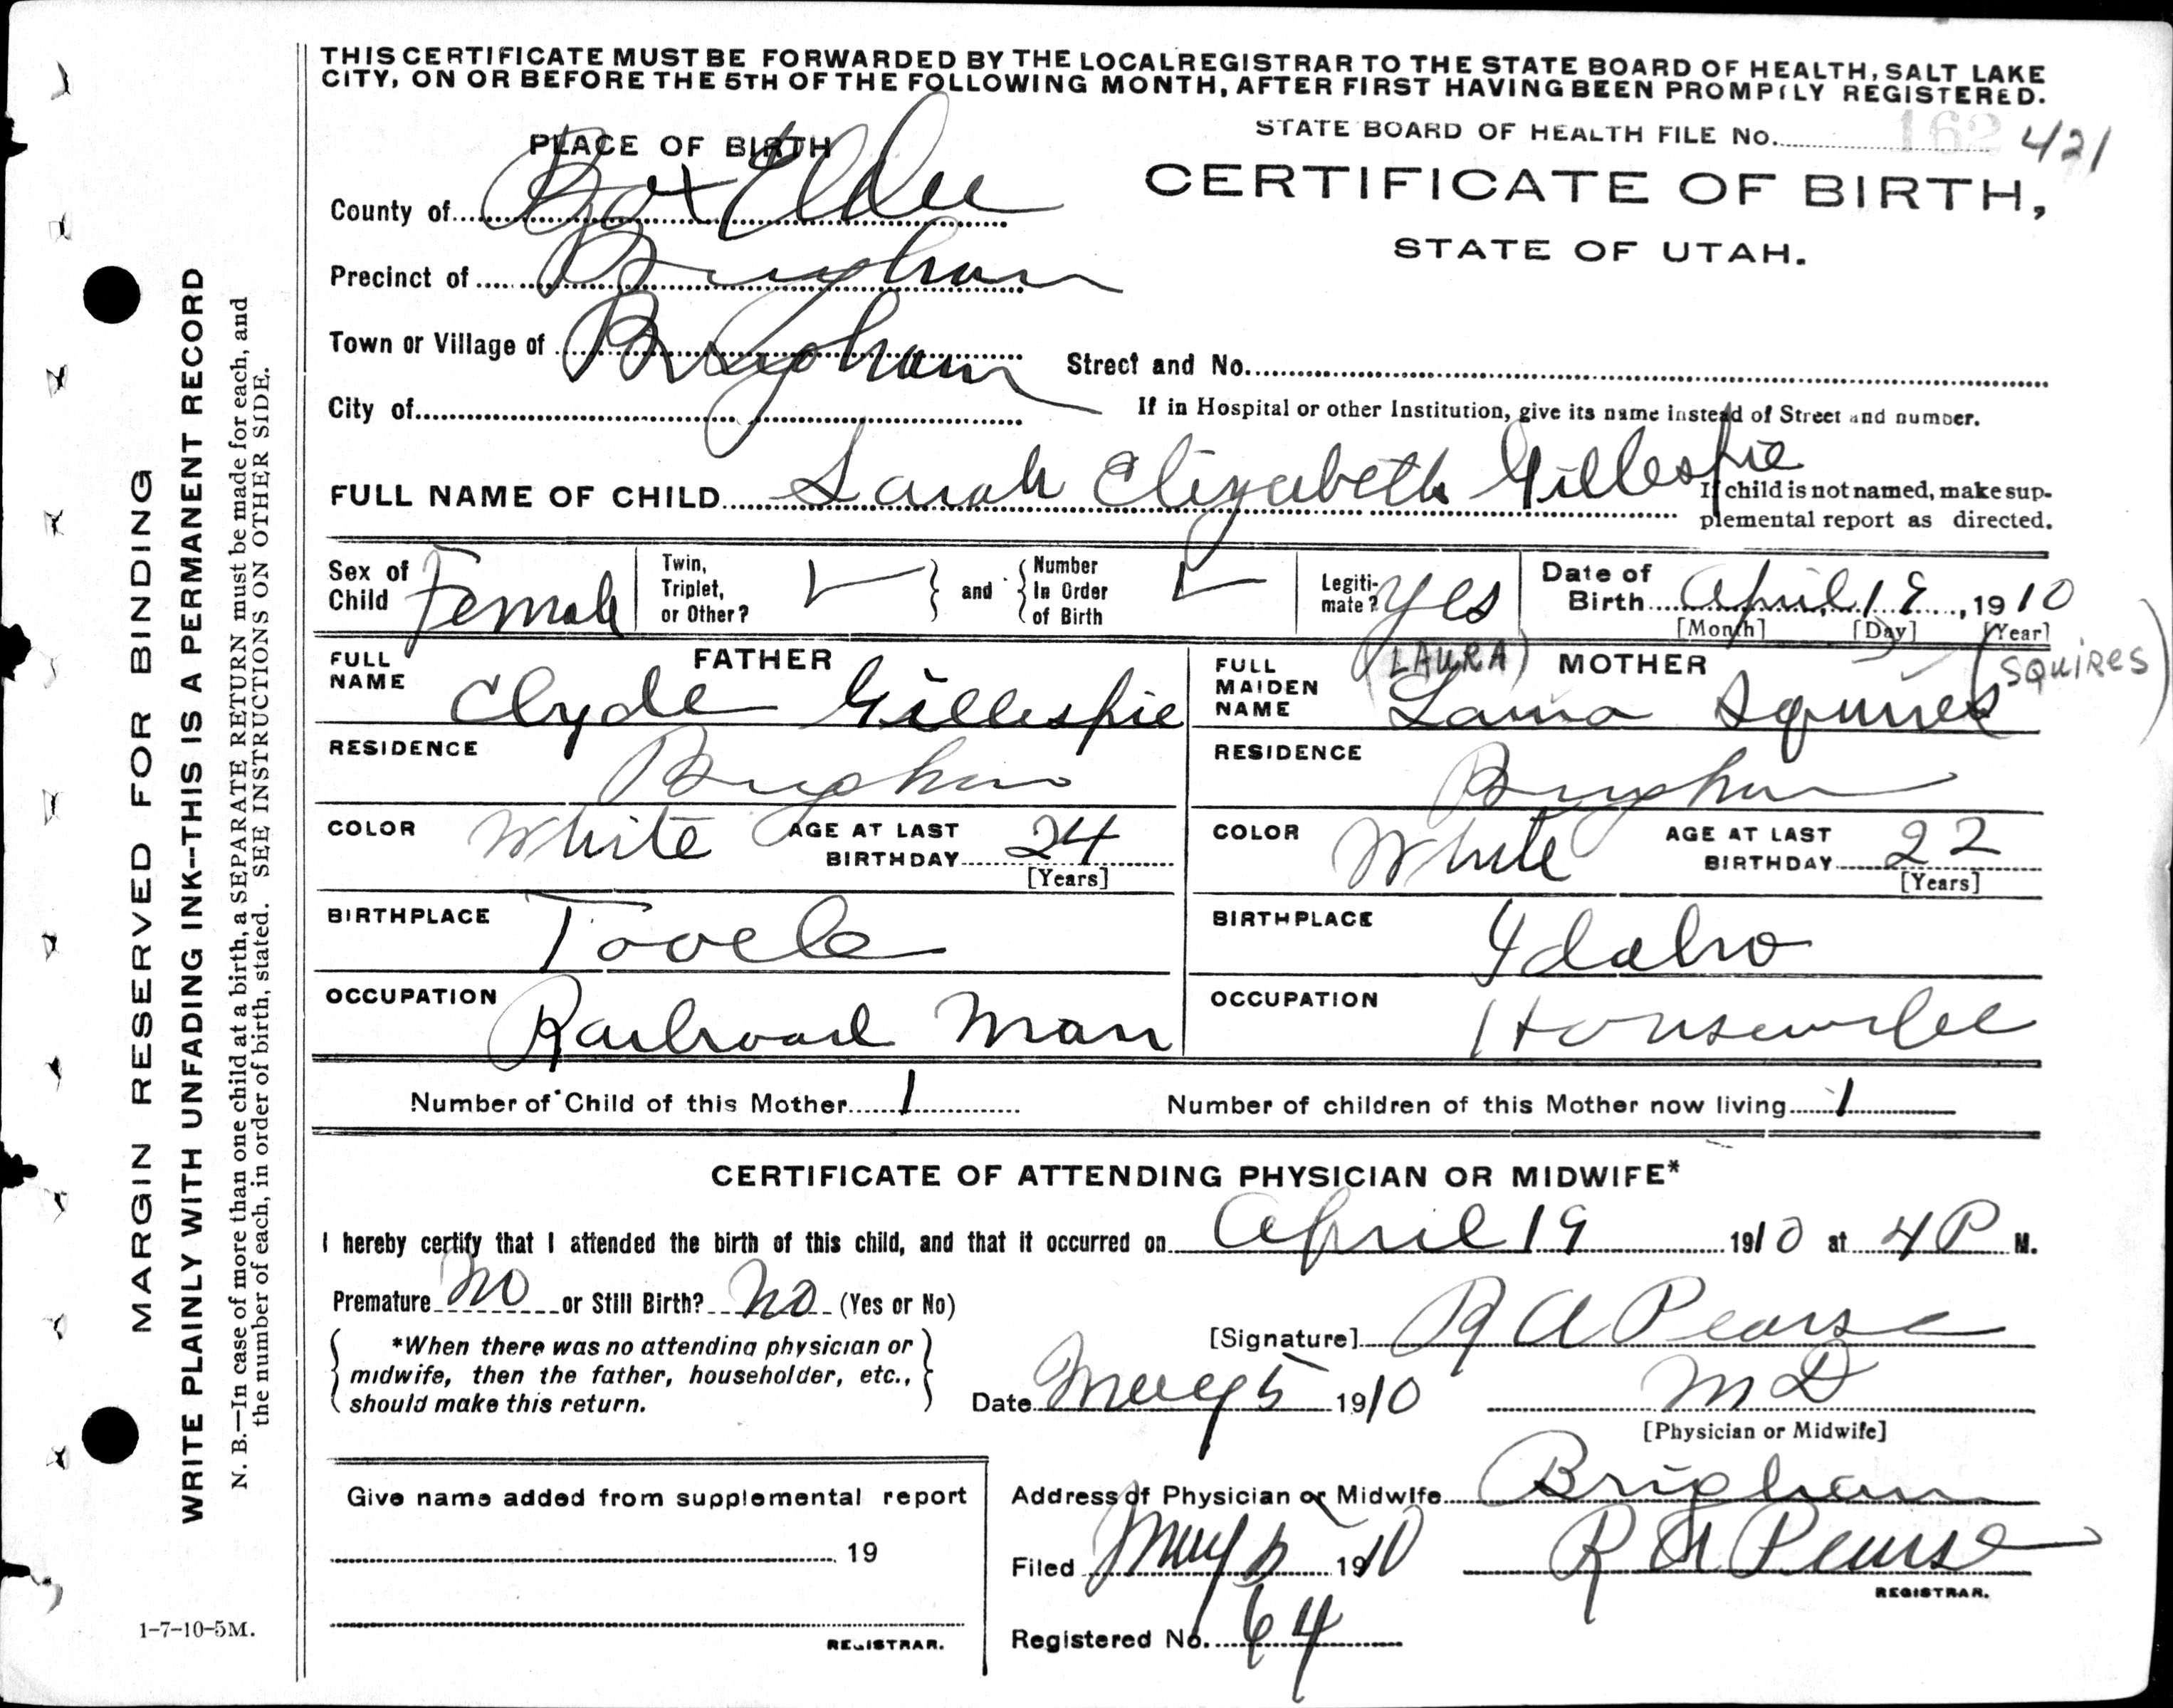 THIS CERTIFICATE MUST BE FORWARDED BY THE LOCAL REGISTRAR TO THE STATE BOARD OF HEALTH, SALT LAKE
CITY, ON OR BEFORE THE 5TH OF THE FOLLOWING MONTH, AFTER FIRST HAVING BEEN PROMPTLY REGISTERED.
STATE BOARD OF HEALTH FILE No. 162 421
PLACE OF BIRTH
CERTIFICATE OF BIRTH,
STATE OF UTAH.
County of Box Elder
Precinct of Brigham
Town or Village of Brigham
Street and No.
City of
If in Hospital or other Institution, give its name instead of Street and number.
FULL NAME OF CHILD Sarah Elizabeth Gillespie
If child is not named, make sup-
plemental report as directed.
Sex of Child Female
Twin, Triplet, or Other?
and
Number In Order of Birth
Legiti-mate? Yes
Date of Birth April 19, 1910
[Month] [Day] [Year]
FATHER
FULL NAME Clyde Gillespie
MOTHER
FULL MAIDEN NAME Laura Squires
(LAURA) (SQUIRES)
RESIDENCE Brigham
RESIDENCE Brigham
COLOR White AGE AT LAST BIRTHDAY 24 [Years]
COLOR White AGE AT LAST BIRTHDAY 22 [Years]
BIRTHPLACE Tooele
BIRTHPLACE Idaho
OCCUPATION Railroad Man
OCCUPATION Housewife
Number of Child of this Mother 1
Number of children of this Mother now living 1
CERTIFICATE OF ATTENDING PHYSICIAN OR MIDWIFE*
I hereby certify that I attended the birth of this child, and that it occurred on April 19 1910 at 4 P M.
Premature No or Still Birth? No (Yes or No)
*When there was no attending physician or
midwife, then the father, householder, etc.,
should make this return.
[Signature] R A Pearse
Date May 5 1910
M D
[Physician or Midwife]
Give name added from supplemental report
19
REGISTRAR.
Address of Physician or Midwife Brigham
Filed May 5 1910 R A Pearse
REGISTRAR.
Registered No. 64
MARGIN RESERVED FOR BINDING
WRITE PLAINLY WITH UNFADING INK--THIS IS A PERMANENT RECORD
N. B.—In case of more than one child at a birth, a SEPARATE RETURN must be made for each, and
the number of each, in order of birth, stated. SEE INSTRUCTIONS ON OTHER SIDE.
1-7-10-5M.